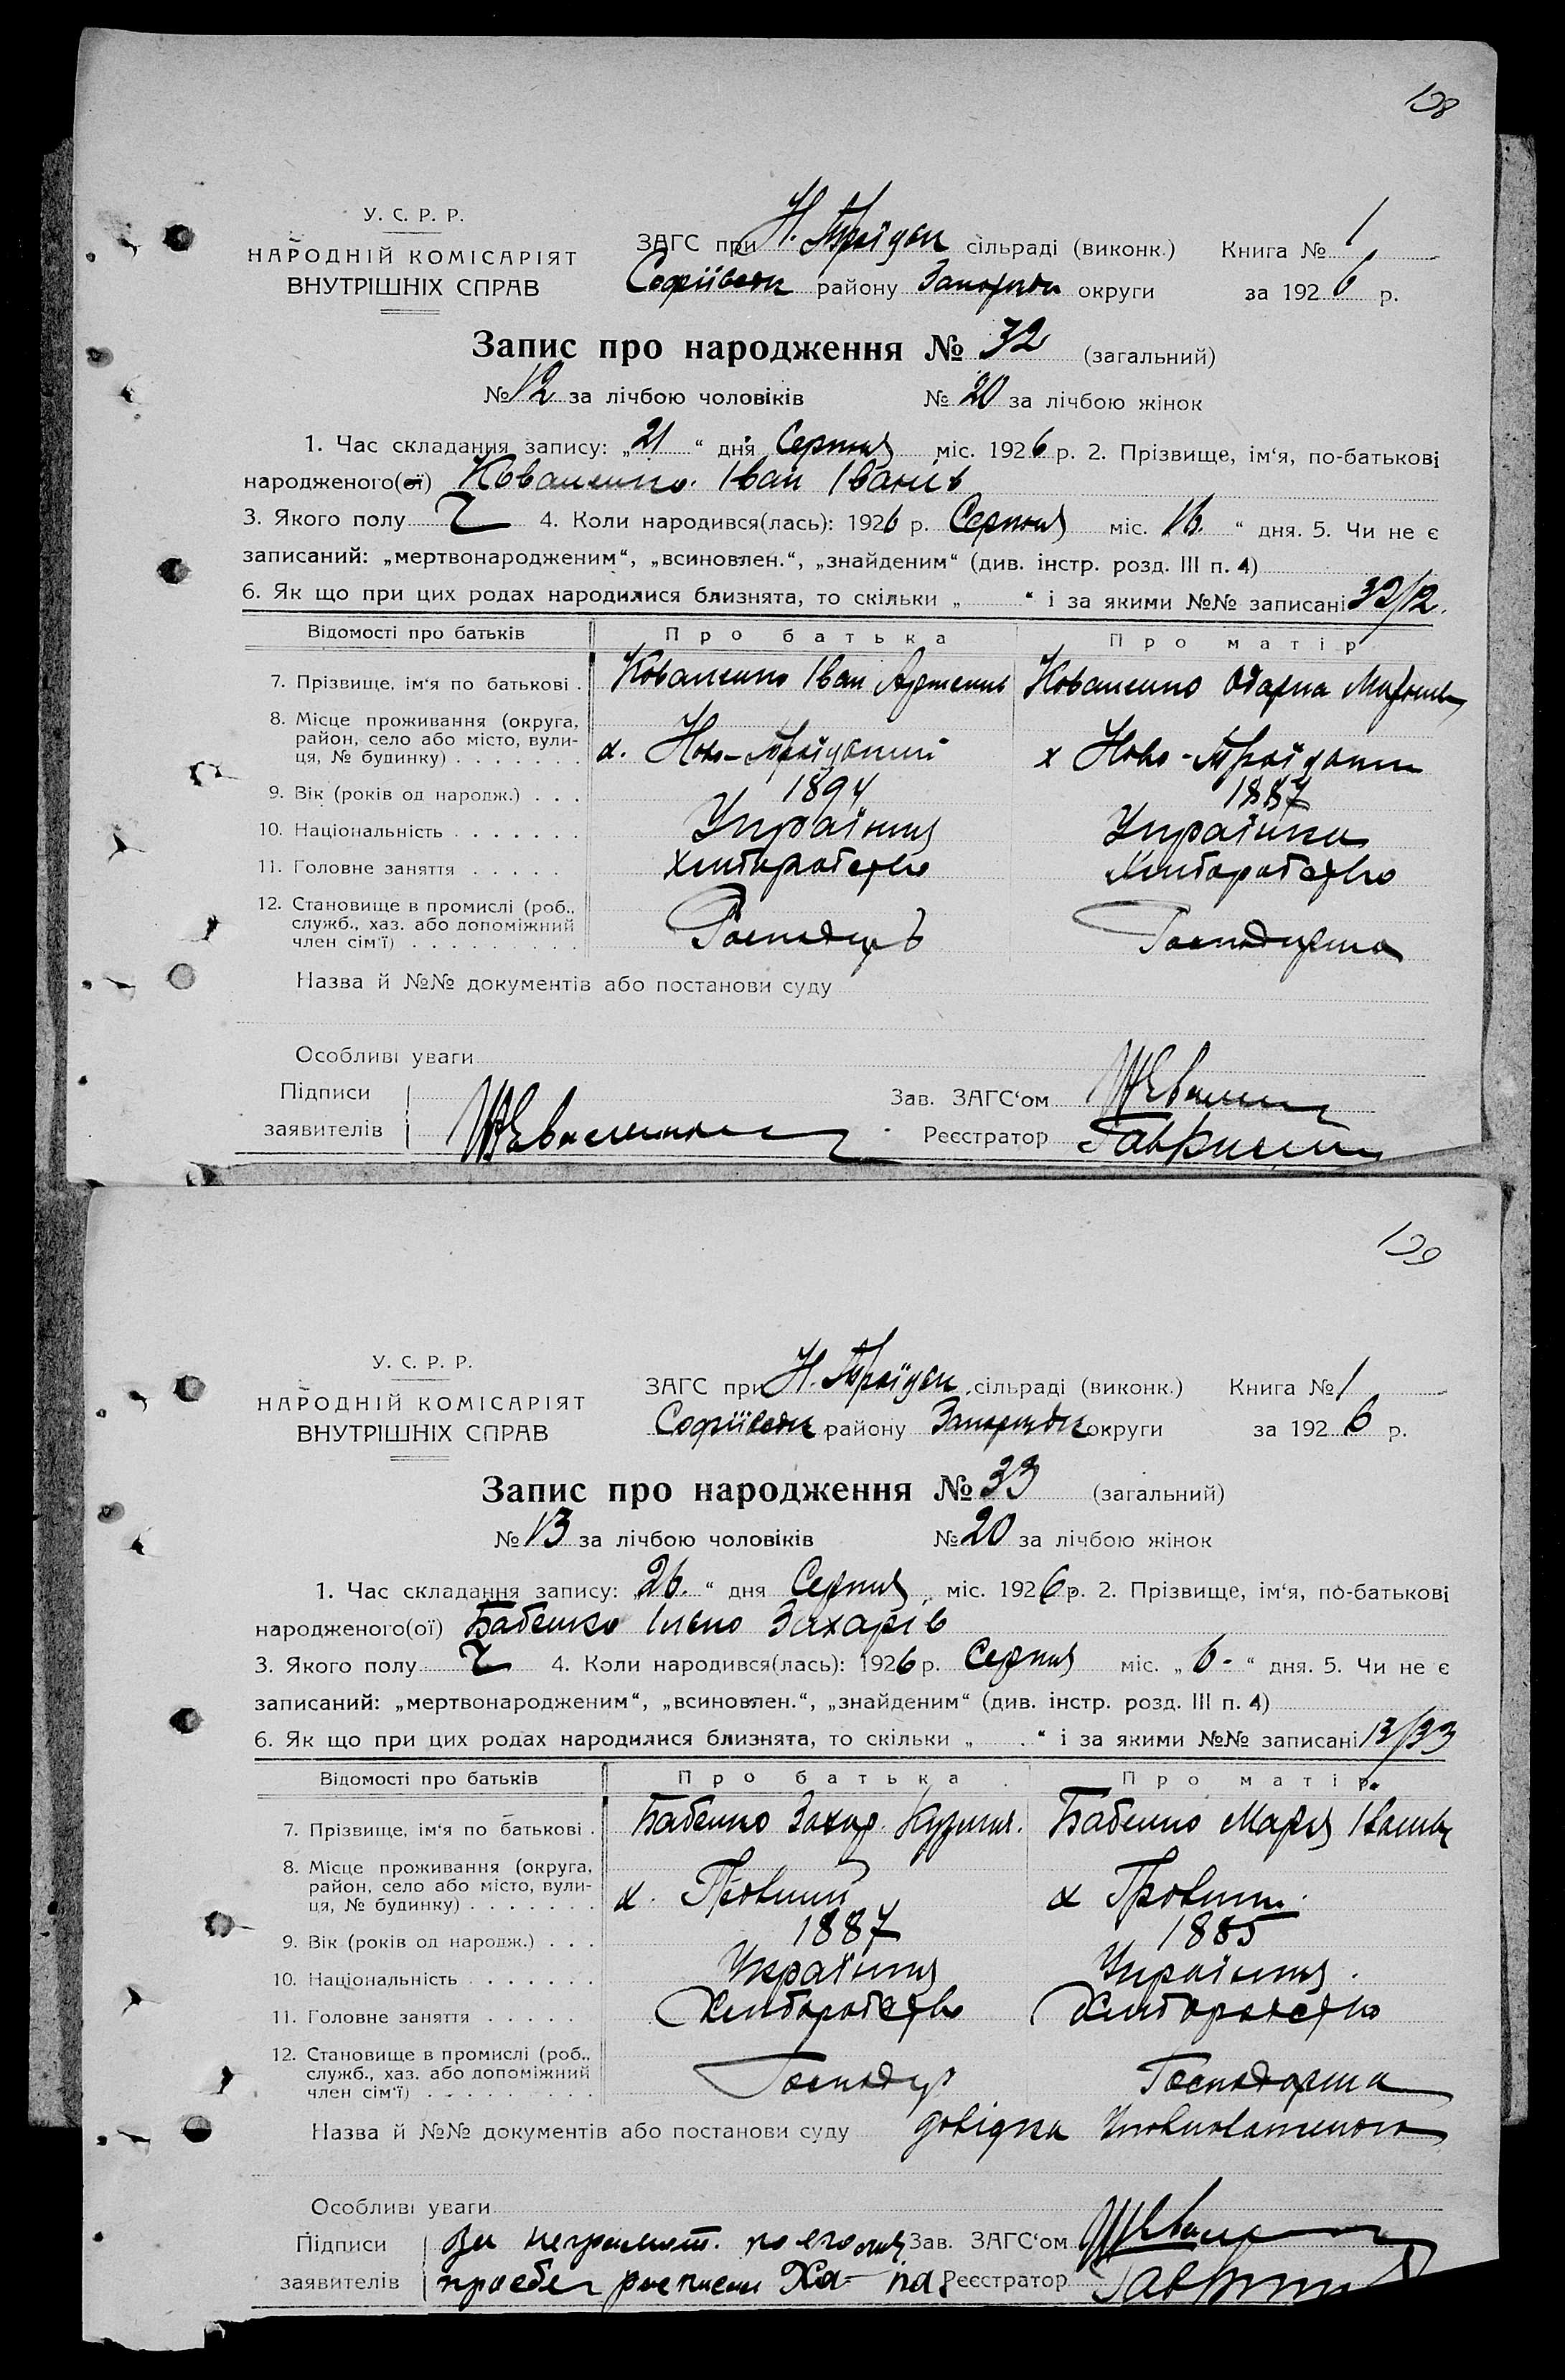 138
У. С. Р. Р.
НАРОДНІЙ КОМІСАРІЯТ
ВНУТРІШНІХ СПРАВ
ЗАГС при Н. Троїцьк сільраді (виконк.) Книга № 1
Софіївськ району Запорізьк округи за 1926 р.
Запис про народження № 32 (загальний)
№ 12 за лічбою чоловіків № 20 за лічбою жінок
1. Час складання запису: „21“ дня Серпня міс. 1926 р. 2. Прізвище, ім‘я, по-батькові
народженого(ої) Коваленко Іван Іванів
3. Якого полу Ч 4. Коли народився(лась): 1926 р. Серпня міс. 16. “ дня. 5. Чи не є
записаний: „мертвонародженим“, „всиновлен.“, „знайденим“ (див. інстр. розд. III п. 4)
6. Як що при цих родах народилися близнята, то скільки „ “ і за якими №№ записані 32/12.
Відомості про батьків Про батька Про матір
7. Прізвище, ім‘я по батькові . Коваленко Іван Коваленко Одарка
8. Місце проживання (округа,
район, село або місто, вули-
ця, № будинку) . . . . . . . х. Ново-Троїцький х Ново-Троїцький
9. Вік (років од народж.) . . . 1894 1887
10. Національність . . . . . . . Українця Українка
11. Головне заняття . . . . . Хліборобство Хліборобство
12. Становище в промислі (роб.,
служб., хаз. або допоміжний
член сім‘ї) . . . . . . . . . Господарь Господарка
Назва й №№ документів або постанови суду
Особливі уваги
Підписи
Зав. ЗАГС‘ом
заявителів
Реєстратор
139
У. С. Р. Р.
НАРОДНІЙ КОМІСАРІЯТ
ВНУТРІШНІХ СПРАВ
ЗАГС при Н. Троїцьк сільраді (виконк.) Книга № 1
Софіївськ району Запорізьк округи за 1926 р.
Запис про народження № 33 (загальний)
№ 13 за лічбою чоловіків № 20 за лічбою жінок
1. Час складання запису: „26.“ дня Серпня міс. 1926 р. 2. Прізвище, ім‘я, по-батькові
народженого(ої) Бабенко Захарів
3. Якого полу Ч 4. Коли народився(лась): 1926 р. Серпня міс. „ 6 - “ дня. 5. Чи не є
записаний: „мертвонародженим“, „всиновлен.“, „знайденим“ (див. інстр. розд. III п. 4)
6. Як що при цих родах народилися близнята, то скільки „ “ і за якими №№ записані 13/33
Відомості про батьків Про батька Про матір
7. Прізвище, ім‘я по батькові . Бабенко Захар Бабенко Марія
8. Місце проживання (округа,
район, село або місто, вули-
ця, № будинку) . . . . . . . х. х
9. Вік (років од народж.) . . . 1887 1885
10. Національність . . . . . . . Українця Українця
11. Головне заняття . . . . . Хліборобство Хліборобство
12. Становище в промислі (роб.,
служб., хаз. або допоміжний
член сім‘ї) . . . . . . . . . Господар Господарка
Назва й №№ документів або постанови суду довідка
Особливі уваги
Підписи за неграмот. по его Зав. ЗАГС‘ом
заявителів Реєстратор